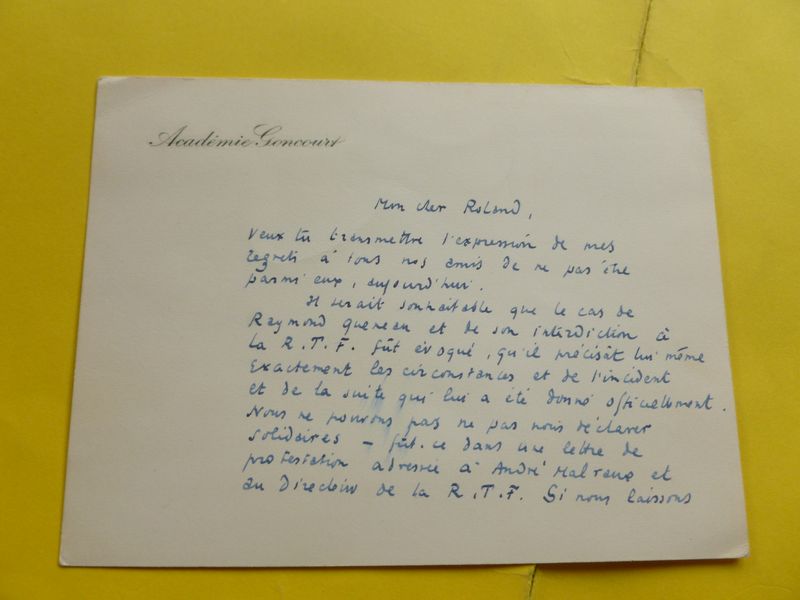 Académie Goncourt
Mon cher Roland,
Veux tu transmettre l'expression de mes
regrets à tous nos amis de ne pas être
parmi eux, aujourd'hui.
Il serait souhaitable que le cas de
Raymond Queneau et de son interdiction à
la R.T.F. fût évoqué, qu'il précisât lui même
exactement les circonstances et de l'incident
et de la suite qui lui a été donné officiellement.
Nous ne pouvons pas ne pas nous déclarer
solidaires – fût-ce dans une lettre de
protestation adressée à André Malraux et
au Directeur de la R.T.F. Si nous laissons